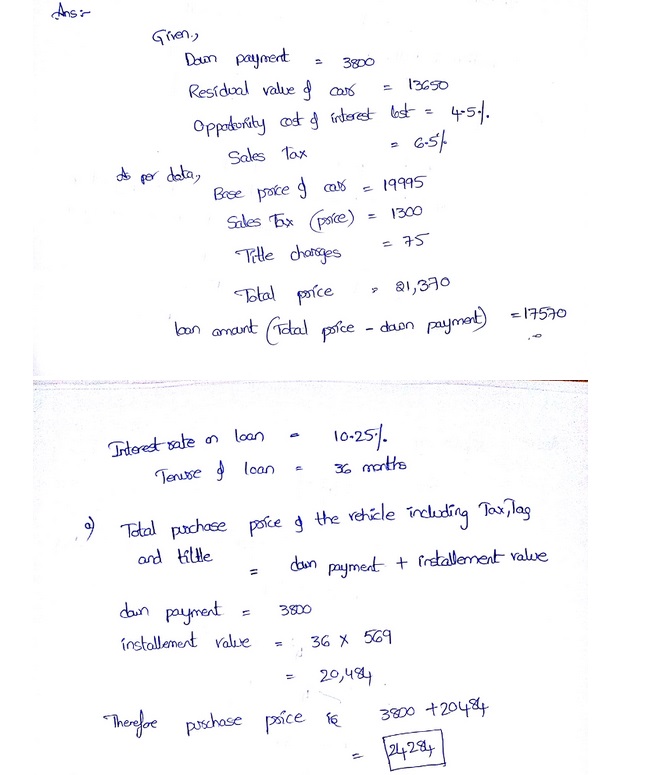 Ans:-
Given.,
Down payment = 3800
Residual value of car = 13650
Opportunity cost of interest lost = 4.5%.
Sales Tax = 6.5%
As per data,
Base price of car = 19995
Sales Tax (price) = 1300
Title charges = 75
Total price = 21,370
loan amount (Total price - down payment) = 17570
Interest rate on loan = 10.25%.
Tenure of loan = 36 months
a) Total purchase price of the vehicle including Tax, Tag
and tittle = down payment + installement value
down payment = 3800
installement value = 36 × 569
= 20,484
Therefore purchase price is 3800 + 20484
= 24284